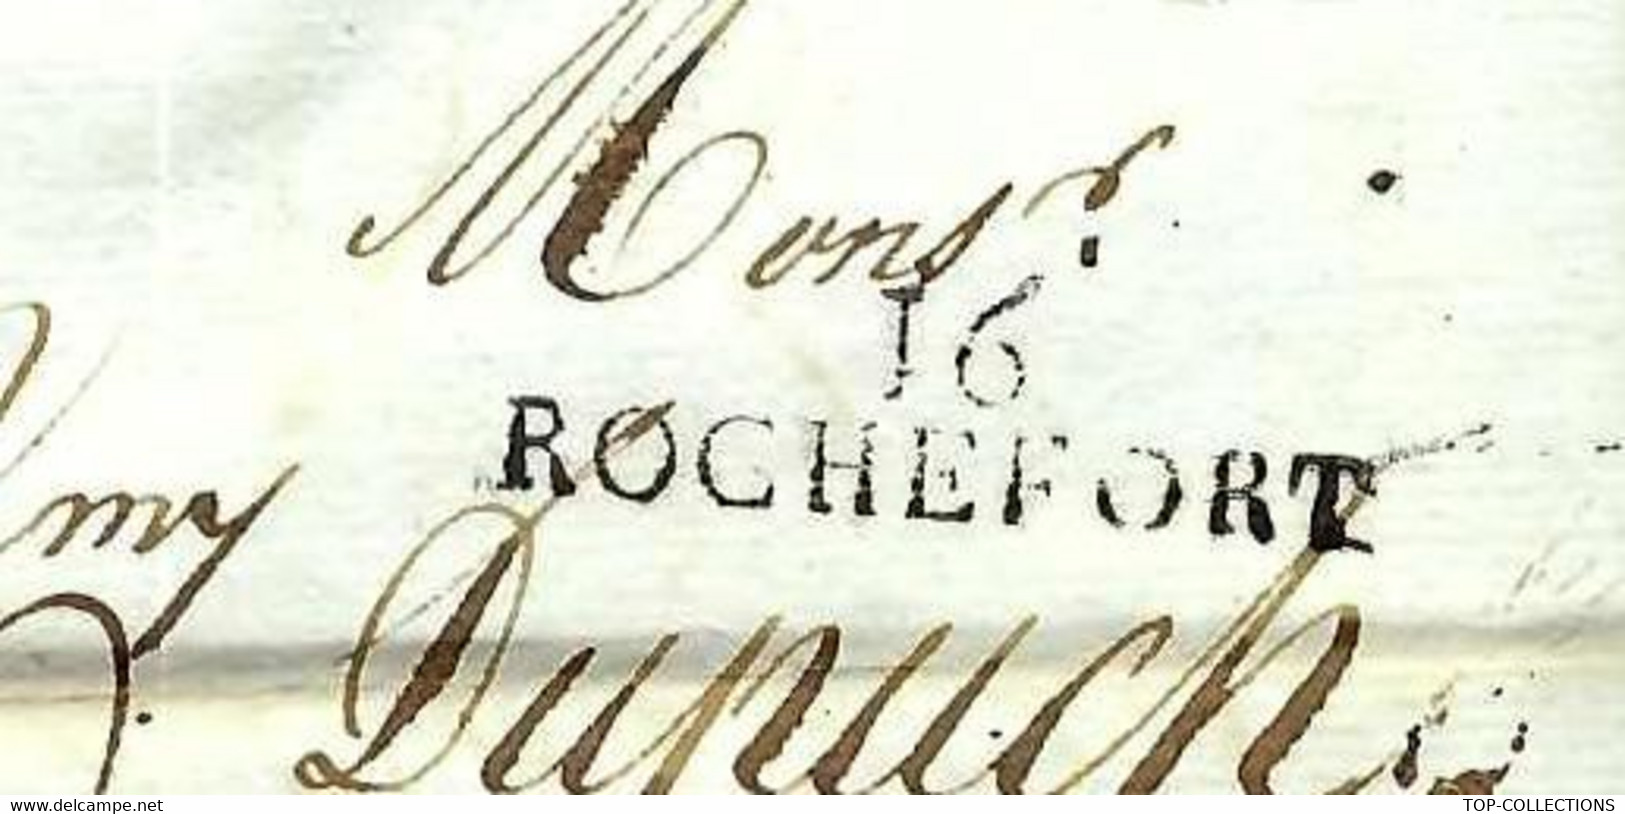 Monsr
16
ROCHEFORT
my
Dupuch
www.delcampe.net
TOP-COLLECTIONS